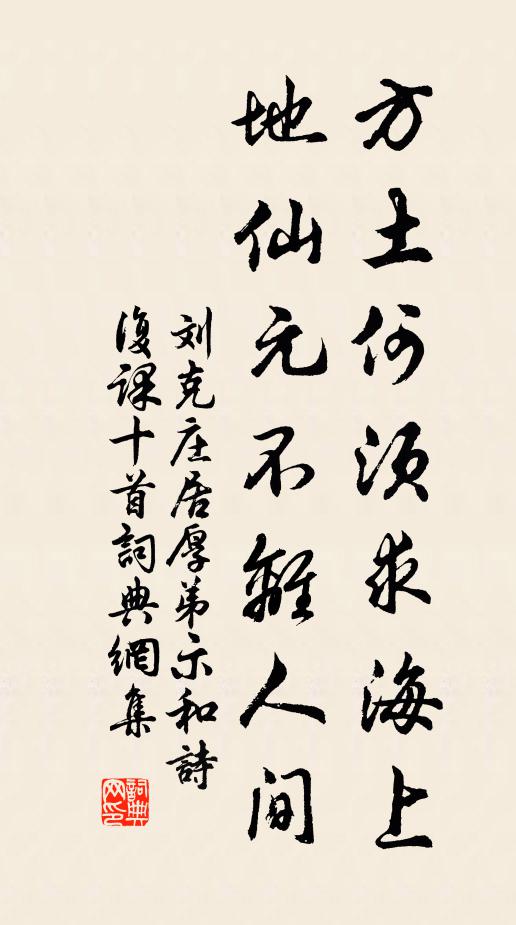 方士何须求海上
地仙元不離人间
刘克庄居厚弟示和詩
復課十首詞典網集
詞典
网印